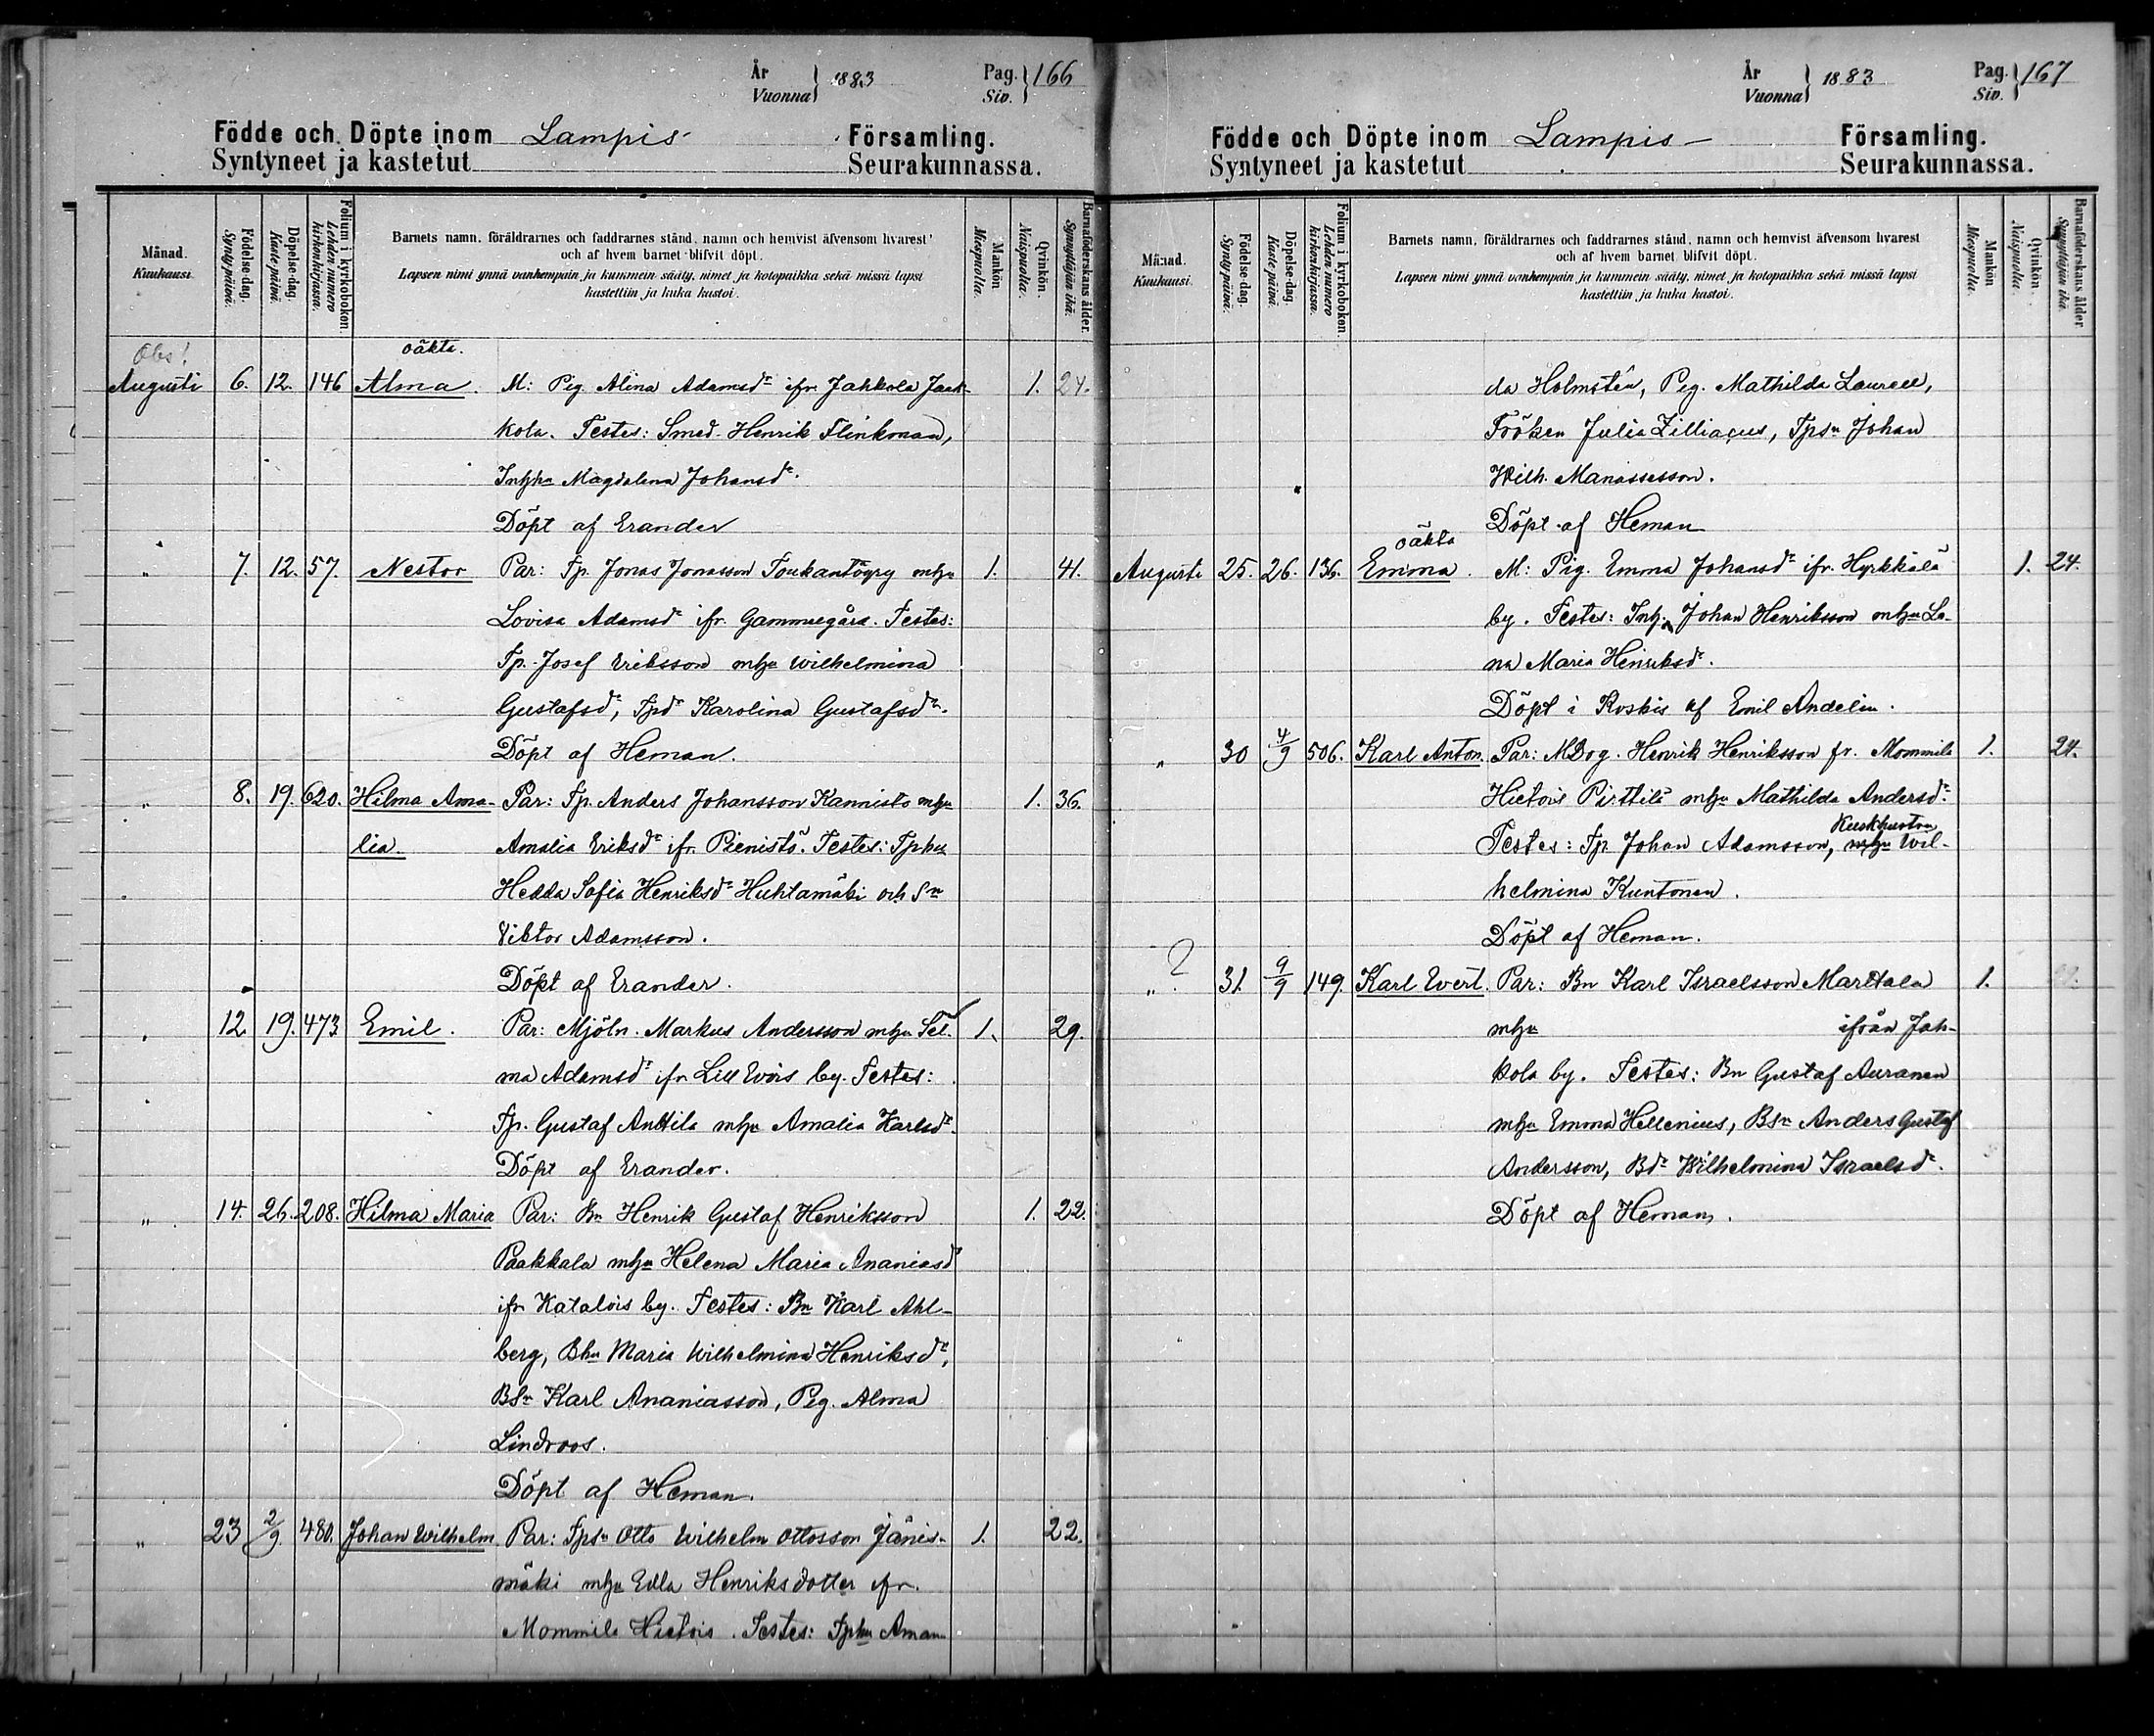 År
Vuonna } 1883
Pag.
Siv. } 166
Födde och Döpte inom Lampis Församling.
Syntyneet ja kastetut Seurakunnassa.
Månad. Kuukausi.
Födelse-dag. Synty päivä.
Döpelse-dag. Kaste päivä.
Folium i kyrkobokon. Lehden numero kirkonkirjassa.
Barnets namn, föräldrarnes och faddrarnes stånd, namn och hemvist äfvensom hvarest
och af hvem barnet blifvit döpt.
Lapsen nimi ynnä vanhempain ja kummein sääty, nimet ja kotopaikka sekä missä lapsi
kastettiin ja kuka kastoi.
Mankön. Miespuolia.
Qvinkön. Naispuolia.
Barnaföderskans ålder. Synnyttäjän ikä.
Obs! oäkta.
Augusti 6. 12. 146 Alma. M: Pig. Alina Adamsdr ifr. Jahkola Jaak- 1. 24.
kola. Testes: Smed. Henrik Flinkman,
Inhhu Magdalena Johansdr.
Döpt af Erander
" 7. 12. 57. Nestor Par: Tp. Jonas Jonasson Toukantögry mhu 1. 41.
Lovisa Adamsdr ifr. Gammelgård. Testes:
Tp. Josef Eriksson mhu Wilhelmina
Gustafsdr, Tpdr Karolina Gustafsdr.
Döpt af Heman.
" 8. 19. 620. Hilma Ama- Par: Tp. Anders Johansson Kannisto mhu 1. 36.
lia Amalia Eriksdr ifr. Pienistö. Testes: Tphu
Hedda Sofia Henriksdr Huhtamäki och Sn
Viktor Adamsson.
Döpt af Erander.
" 12. 19. 473 Emil. Par: Mjöln. Markus Andersson mhu Sel- 1. 29.
ma Adamsdr ifr Lill Evois by. Testes:
Tp. Gustaf Anttila mhu Amalia Karlsdr.
Döpt af Erander.
" 14. 26. 208. Hilma Maria Par: Bn Henrik Gustaf Henriksson 1. 22.
Paakkala mhu Helena Maria Ananiasdr
ifr Katalois by. Testes: Bn Karl Ahl-
berg, Bhu Maria Wilhelmina Henriksdr,
BSn Karl Ananiasson, Pig. Alma
Lindroos.
Döpt af Heman.
" 23 2/9. 480. Johan Wilhelm Par: Tpsn Otto Wilhelm Ottosson Jänis- 1. 22.
mäki mhu Edla Henriksdotter ifr.
Mommila Hietois. Testes: Tphu Aman-
År
Vuonna } 1883
Pag.
Siv. } 167
Födde och Döpte inom Lampis Församling.
Syntyneet ja kastetut Seurakunnassa.
Månad. Kuukausi.
Födelse-dag. Synty päivä.
Döpelse-dag. Kaste päivä.
Folium i kyrkobokon. Lehden numero kirkonkirjassa.
Barnets namn, föräldrarnes och faddrarnes stånd, namn och hemvist äfvensom hvarest
och af hvem barnet blifvit döpt.
Lapsen nimi ynnä vanhempain ja kummein sääty, nimet ja kotopaikka sekä missä lapsi
kastettiin ja kuka kastoi.
Mankön. Miespuolia.
Qvinkön. Naispuolia.
Barnaföderskans ålder. Synnyttäjän ikä.
da Holmstén, Pig. Mathilda Laurell,
Fröken Julia Zilliacus, Tpsn Johan
Wilh. Manassesson.
Döpt af Heman
oäkta
Augusti 25. 26. 136. Emma. M: Pig. Emma Johansdr ifr. Hyrkkälä 1. 24.
by. Testes: Inh. Johan Henriksson mhu Le-
na Maria Henriksdr.
Döpt i Koskis af Emil Andelin.
" 30 4/9 506. Karl Anton. Par: MDog. Henrik Henriksson fr. Mommila 1. 24.
Hietois Pirttilä mhu Mathilda Andersdr.
Kuskhustru
Testes: Tp Johan Adamsson, mhu Wil-
helmina Kuntonen.
Döpt af Heman.
?
" 31. 9/9 149. Karl Evert. Par: Bn Karl Israelsson Marttala 1.
mhu ifrån Jah-
kola by. Testes: Bn Gustaf Auranen
mhu Emma Hellenius, BSn Anders Gustaf
Andersson, Bdr Wilhelmina Israelsdr.
Döpt af Heman.